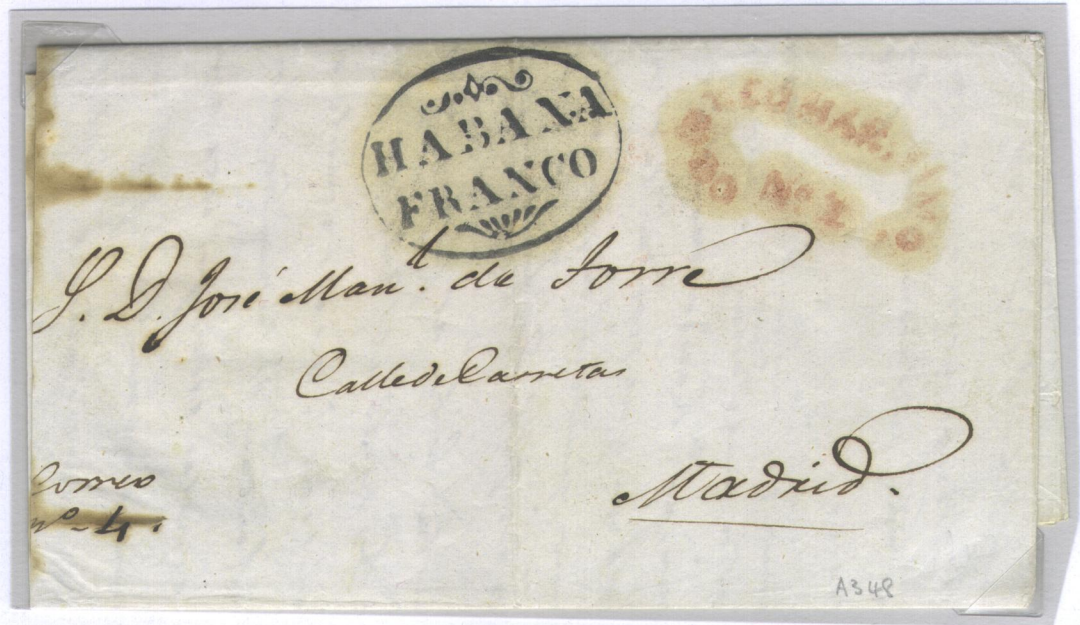 HABANA
FRANCO
No 1
S. D. José Man.l de Torre
Calle de Carretas
Madrid.
Correo
no 4.
A348